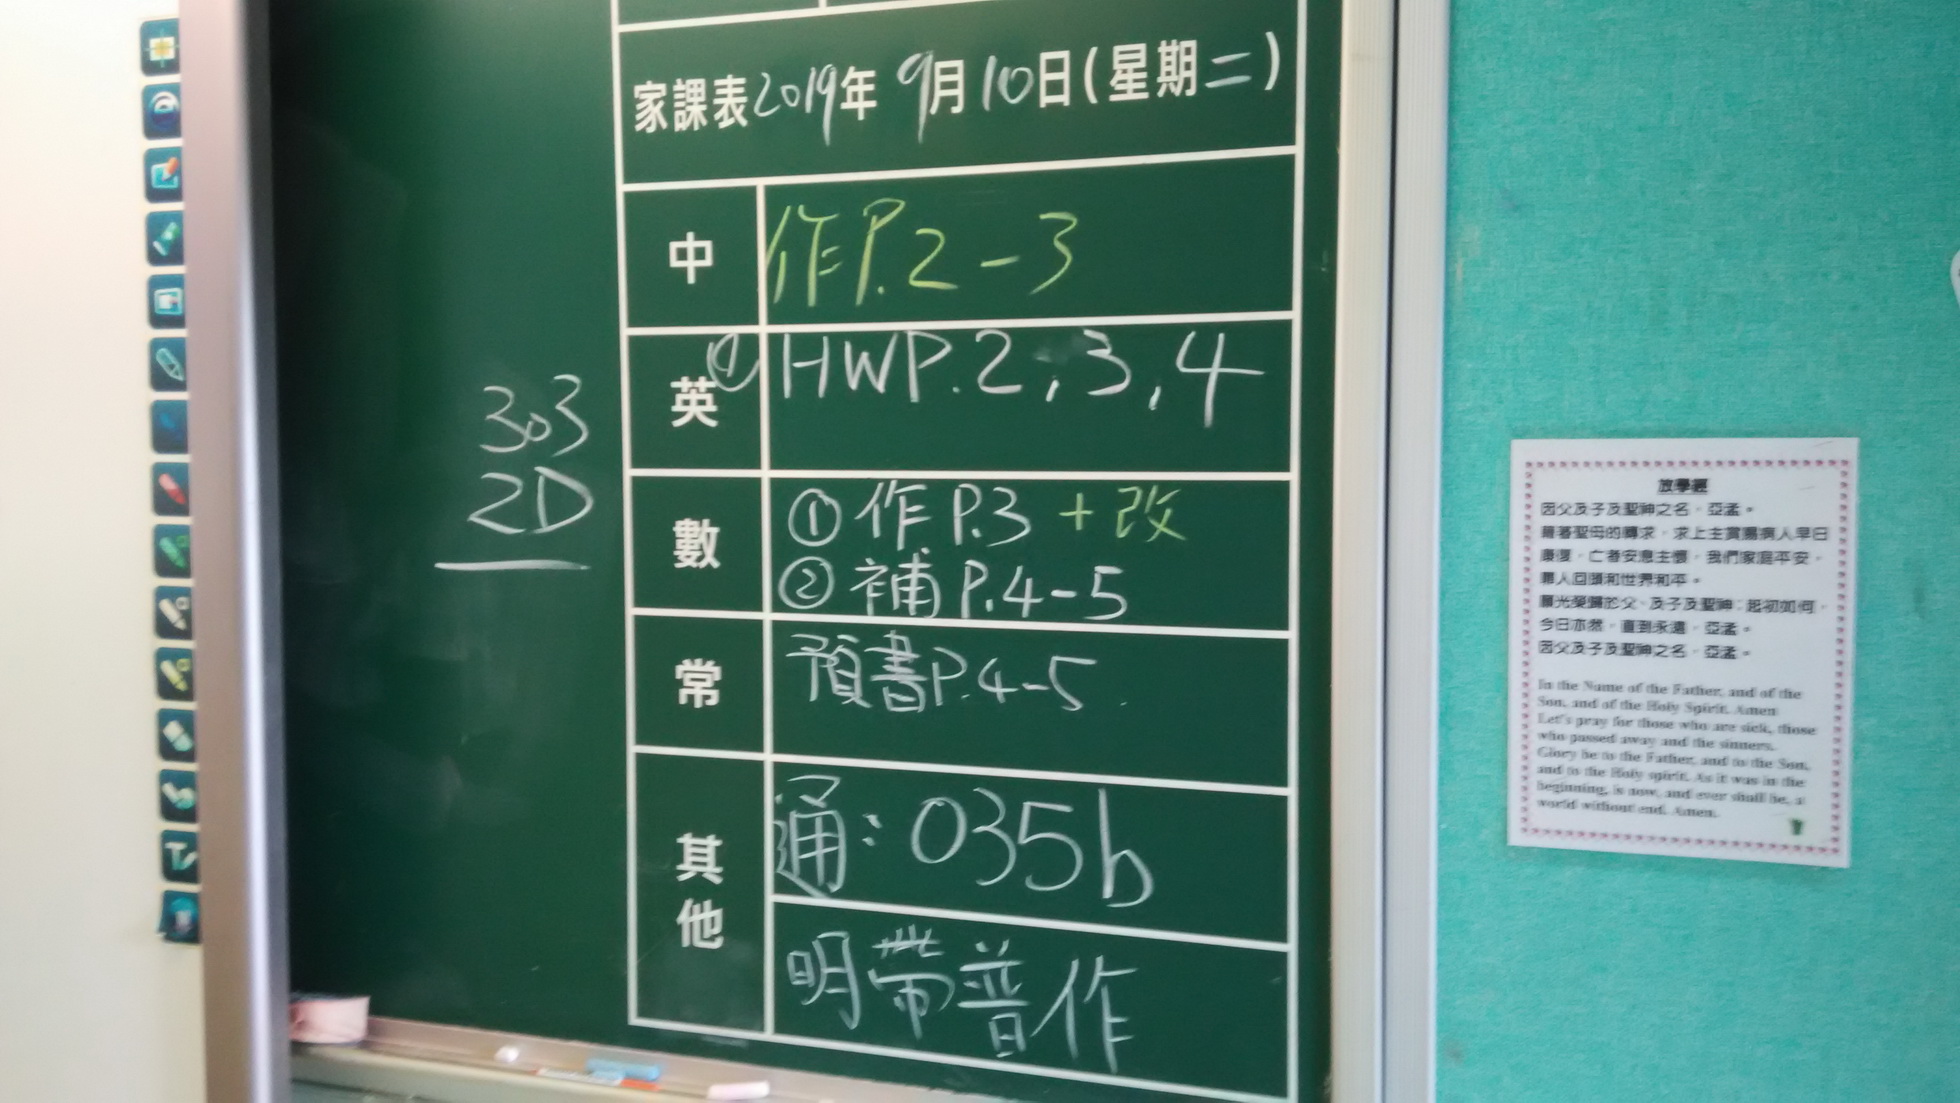 303
2D
家課表2019年 9月10日(星期二)
中 作P.2-3
英 ① HWP.2,3,4
數 ①作P.3+改
②補P.4-5
常 預書P.4-5.
其他 通:035b
明帶普作
放學經
因父及子及聖神之名,亞孟。
藉著聖母的轉求,求上主賞賜病人早日
康復,亡者安息主懷,我們家庭平安,
罪人回頭和世界和平。
願光榮歸於父、及子及聖神;起初如何,
今日亦然,直到永遠,亞孟。
因父及子及聖神之名,亞孟。
In the Name of the Father, and of the
Son, and of the Holy Spirit. Amen
Let's pray for those who are sick, those
who passed away and the sinners.
Glory be to the Father, and to the Son,
and to the Holy spirit. As it was in the
beginning, is now, and ever shall be, a
world without end. Amen.